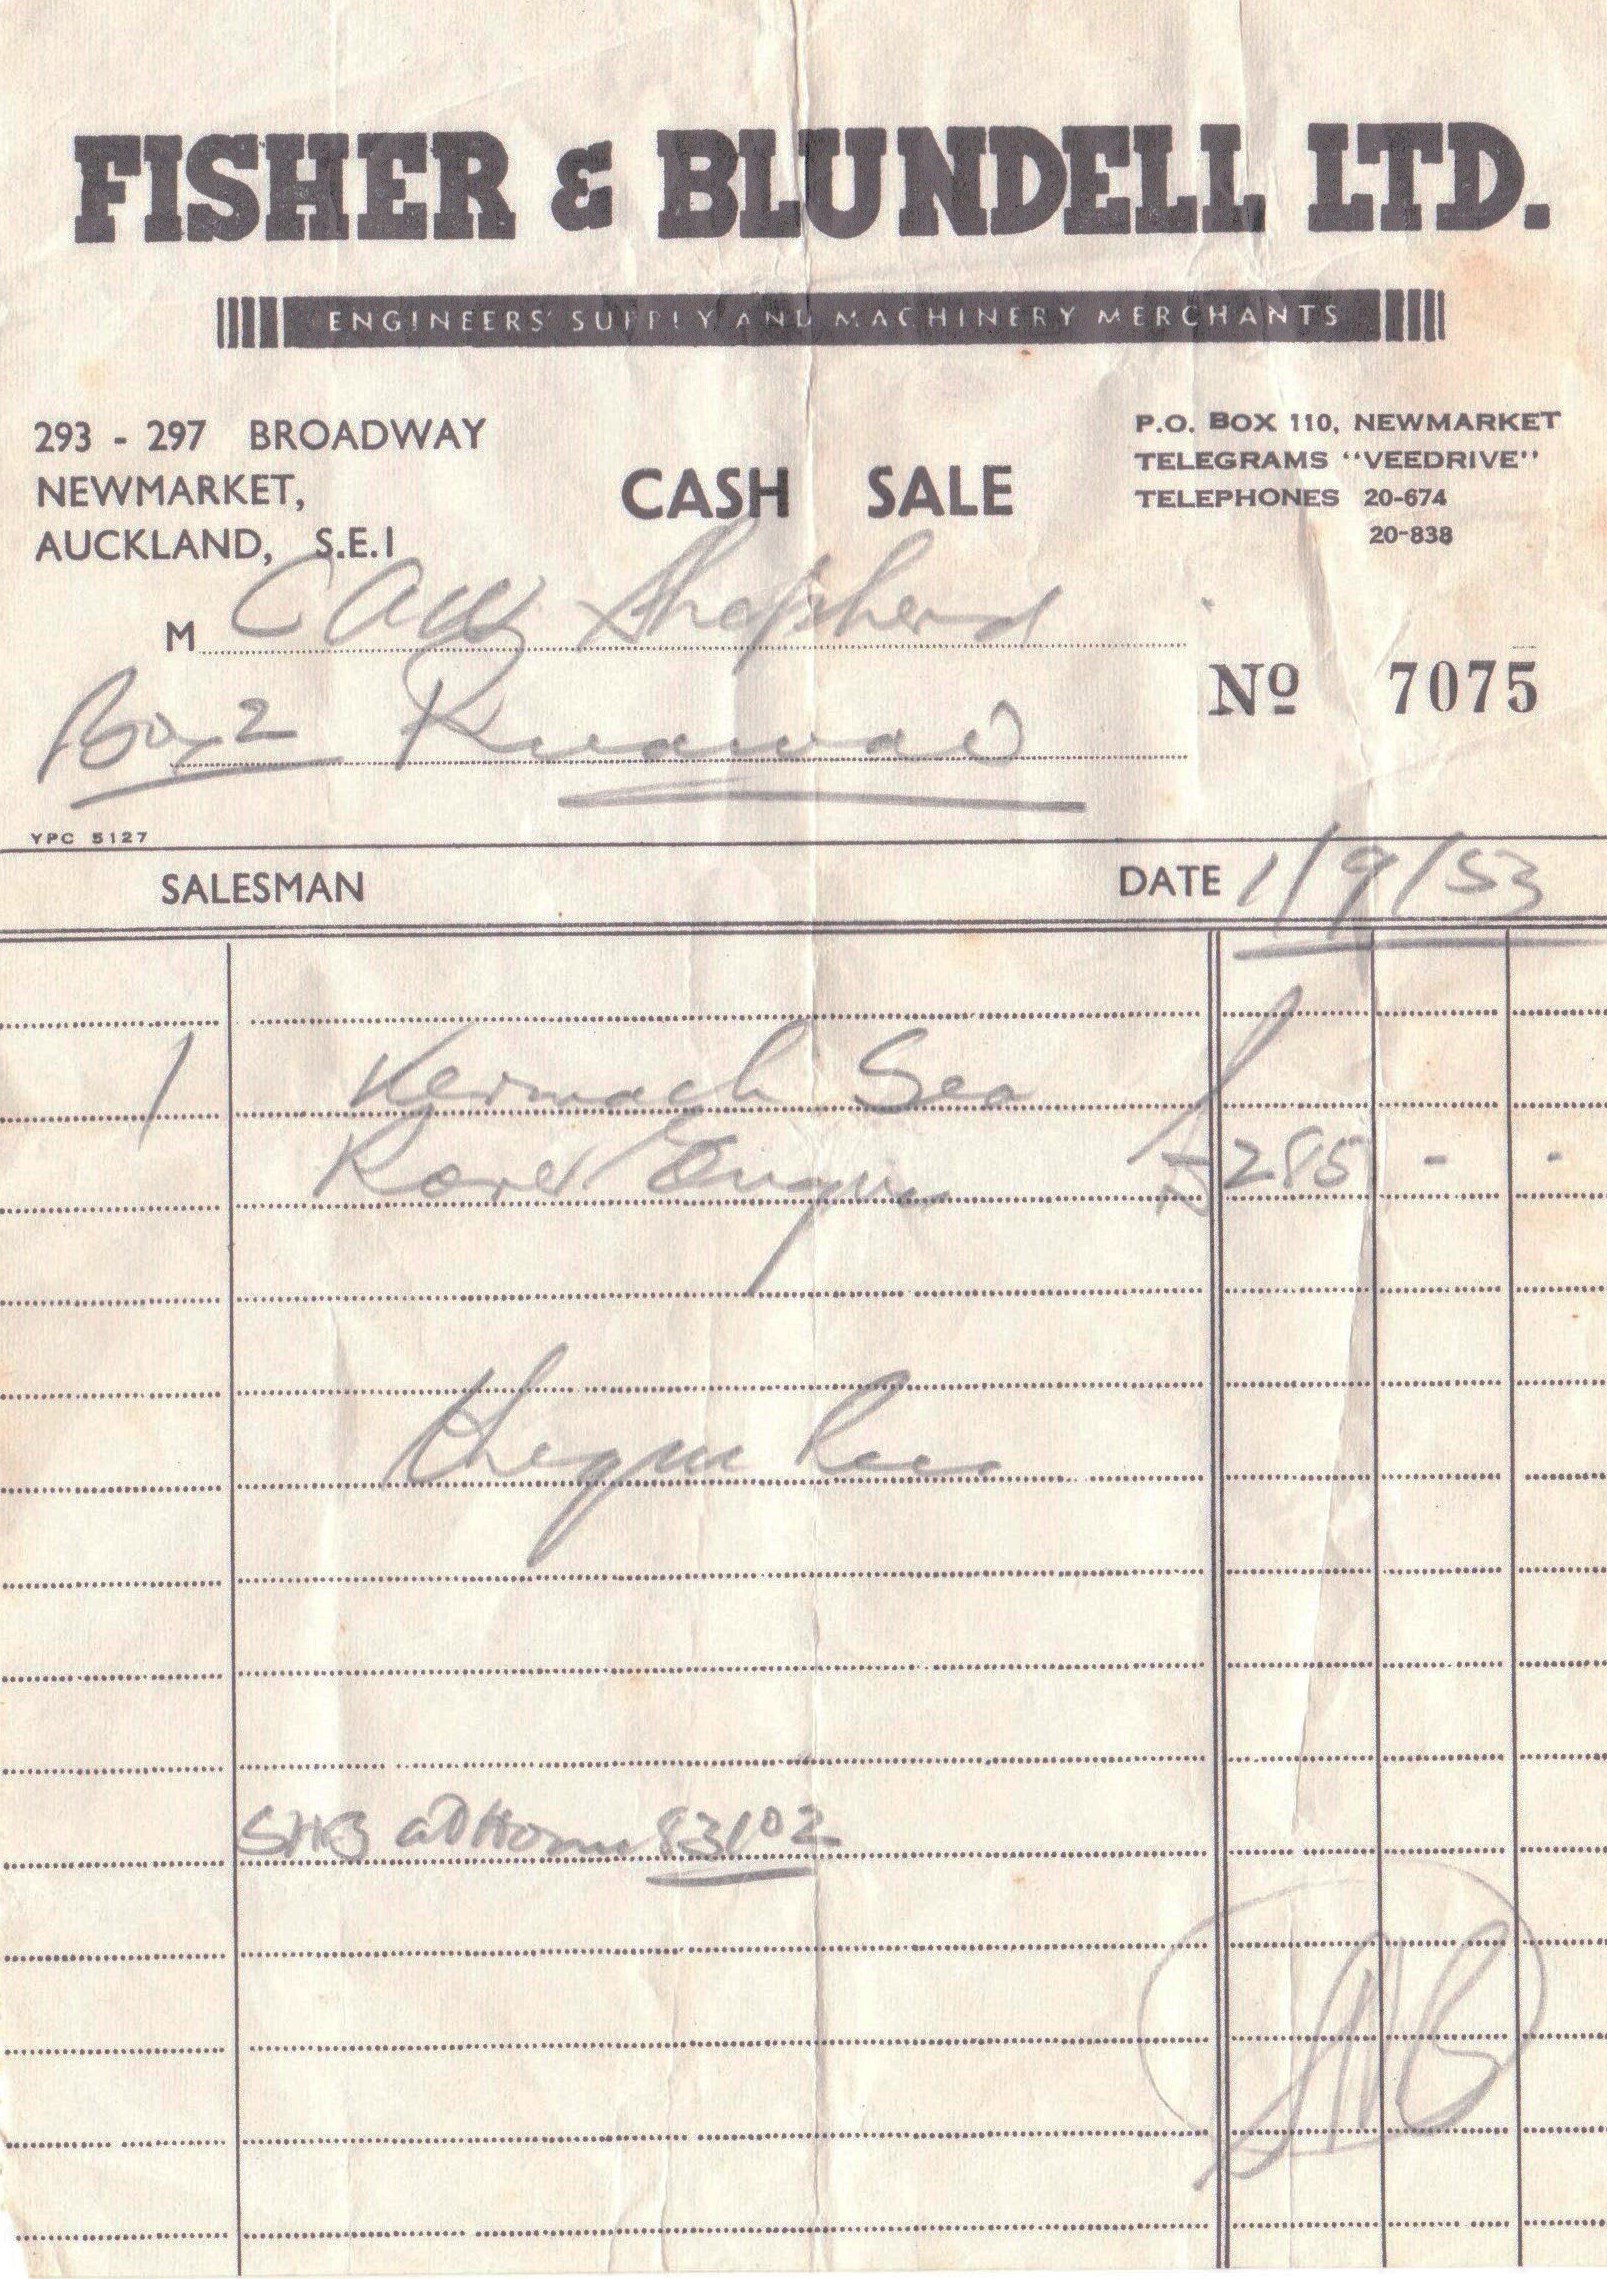 FISHER & BLUNDELL LTD.
ENGINEERS' SUPPLY AND MACHINERY MERCHANTS
293 - 297 BROADWAY
NEWMARKET,
AUCKLAND, S.E.1
CASH SALE
P.O. BOX 110, NEWMARKET
TELEGRAMS "VEEDRIVE"
TELEPHONES 20-674
20-838
M Shepherd
Box 2 Ruawai
No 7075
YPC 5127
SALESMAN
DATE 1/9/53
1 Kermach Sea
Rover Engine £285 - -
Cheque
SHB at Home 83102
SHB